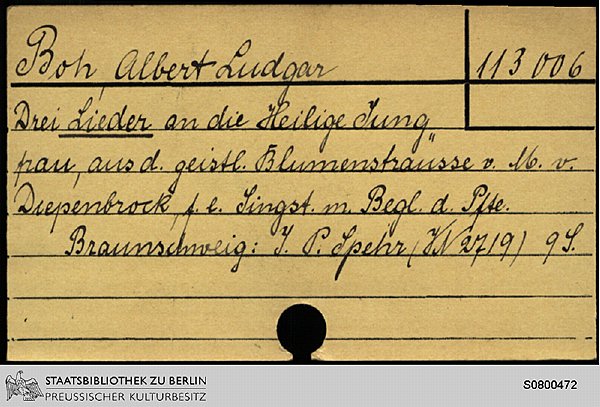 Boh, Albert Ludgar
113006
Drei Lieder an die Heilige Jung
frau, aus d. geistl. Blumenstrausse v. M. v.
Diepenbrock, f. e. Singst. m. Begl. d. Pfte.
Braunschweig: J. P. Spehr (VN 2719) 9 S.
STAATSBIBLIOTHEK ZU BERLIN
PREUSSISCHER KULTURBESITZ
S0800472